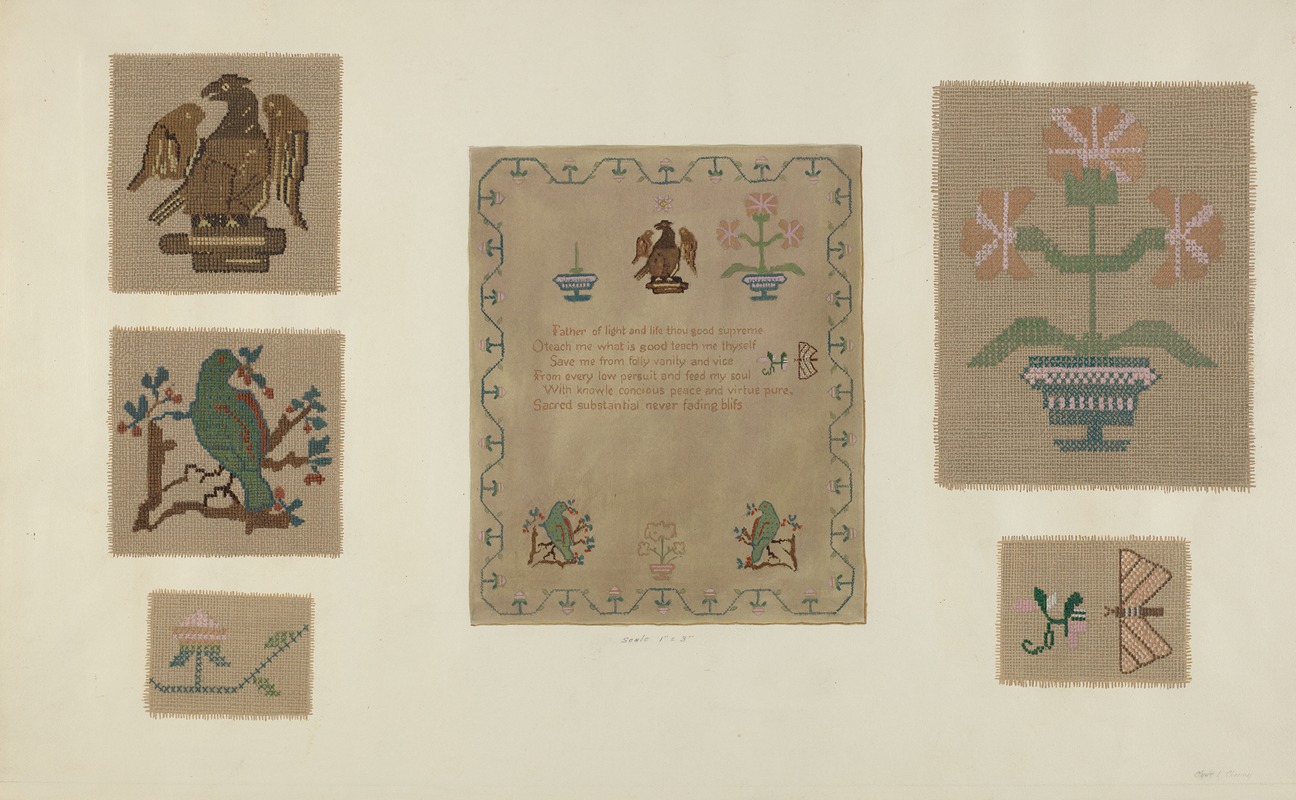 Father of light and life thou good supreme
O teach me what is good teach me thyself
Save me from folly vanity and vice
From every low persuit and feed my soul
With knowle concious peace and virtue pure,
Sacred substantial never fading blifs
Scale 1" = 3"